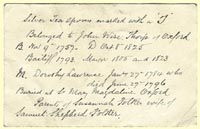 Silver Tea spoons marked with a "T"
Belonged to John Wise Thorp of Oxford
B Nov 9th 1757. D Oct 5 1825
Bailiff 1793. Mayor 1805 and 1823
M. Dorothy Lawrence Jany 27th 1784 who
died June 29th 1796
Buried at St Mary Magdalene Oxford
Family of Susannah Tottler wife of
Samuel Shepherd Tottler.